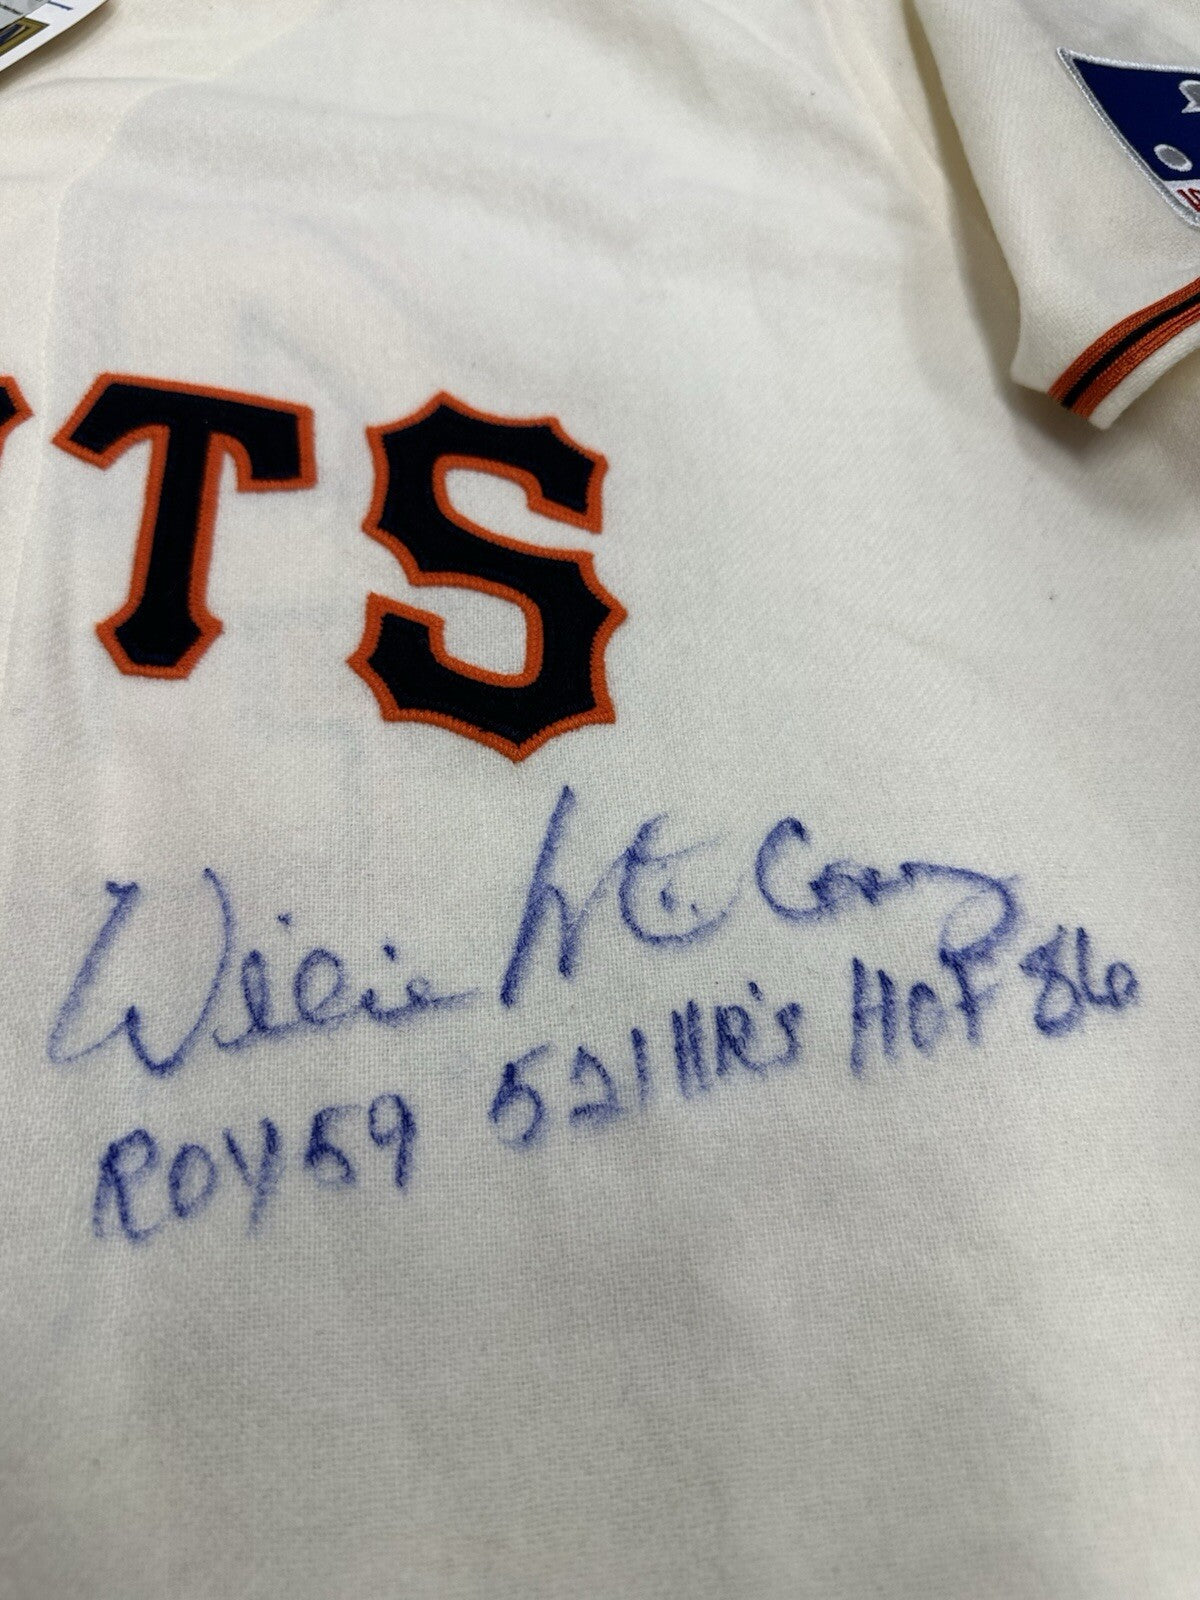 TS
Willie McCovey
ROY 59 521 HR's HOF 86